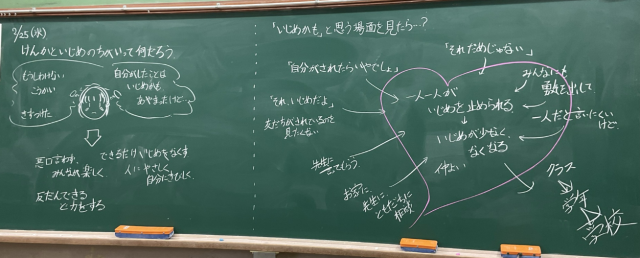 2/25(水)
けんかといじめのちがいって何だろう。
もうしわけない
こうかい
きずつけた
自分がしたことは
いじめかも
あやまったけど…
悪口言わず、
みんな楽しく
友だちできる
ど力をする
できるだけいじめをなくす
人にやさしく
自分にきびしく
「いじめかも」と思う場面を見たら…?
「自分がされたらいやでしょ」
「それだめじゃない」
「それ、いじめだよ」
友だちがされているのを
見たくない
一人一人が
いじめを止められる
いじめが少なく、
なくなる
仲よい
みんなにも
勇気を出して
一人だと言いにくい
けど、
先生に
言ってもらう。
お家に、
先生に
ともだちに
相談
クラス
学年
学校